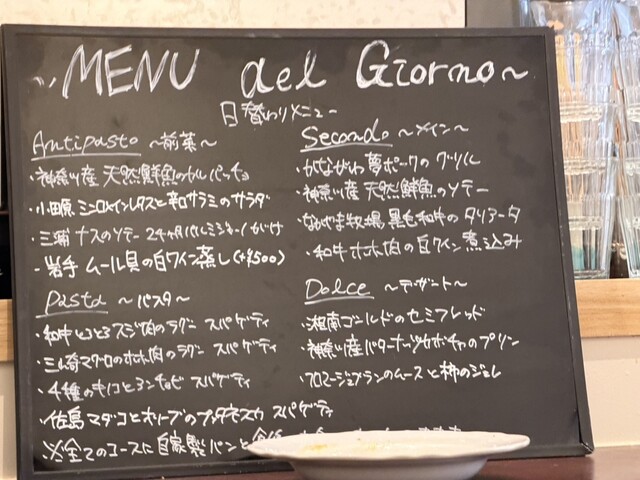 MENU del Giorno~
日替わりメニュー
Antipasto ~前菜~
・神奈川産 天然鮮魚のカルパッチョ
・小田原 シシリアンレタスと辛サラミのサラダ
・三浦 ナスのソテー 24ヶ月パルミジャーノがけ
・岩手 ムール貝の白ワイン蒸し(+¥500)
Pasta ~パスタ~
・和牛とろとろスジ肉のラグー スパゲティ
・三崎マグロのホホ肉のラグー スパゲティ
・4種のキノコとアンチョビ スパゲティ
・佐島 マダコとオリーブのプッタネスカ スパゲティ
※全てのコースに自家製パンと
Secondo ~メイン~
・かながわ 夢ポークのグリル
・神奈川産 天然鮮魚のソテー
・なかやま牧場 黒毛和牛のタリアータ
・和牛ホホ肉の白ワイン煮込み
Dolce ~デザート~
・湘南ゴールドのセミフレッド
・神奈川産バターナッツカボチャのプリン
・フロマージュブランのムースと柿のジュレ